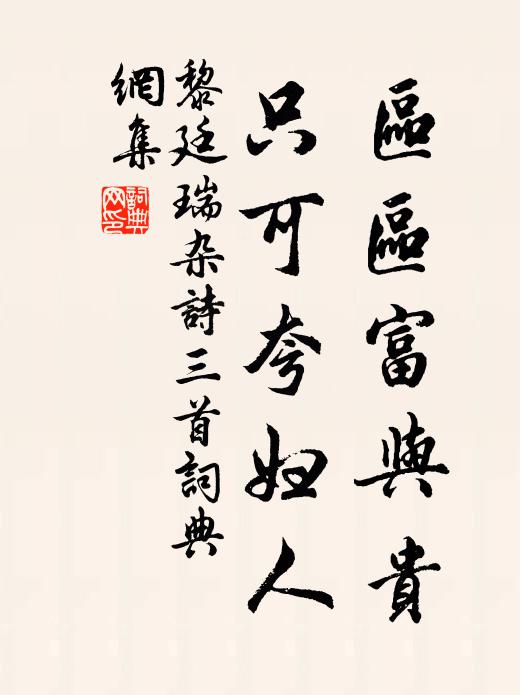 區區富與貴
只可夸婦人
黎廷瑞杂詩三首詞典
網集
詞典
网印